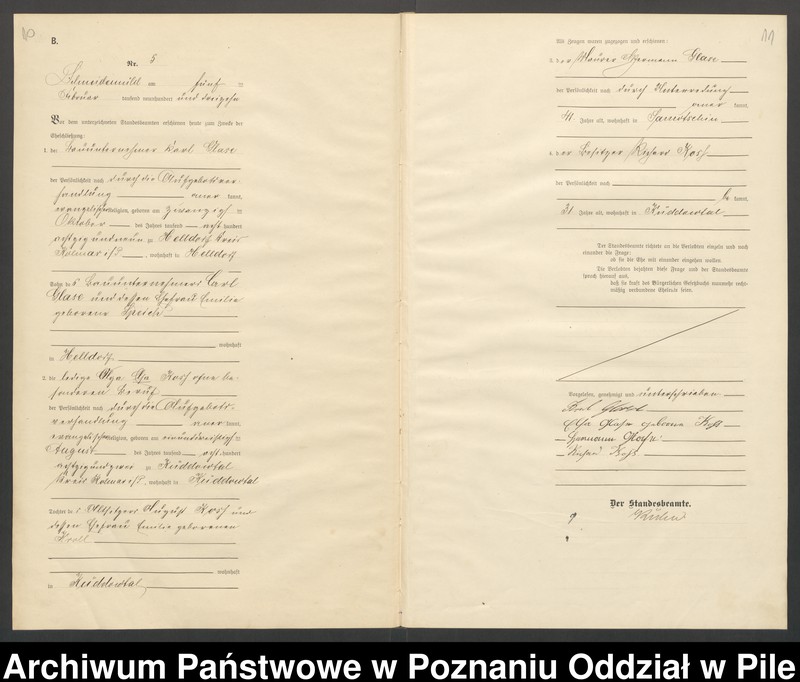 10
B.
Nr. 5
Schneidemühl am fünf ten
Februar tausend neunhundert und dreizehn
Vor dem unterzeichneten Standesbeamten erschienen heute zum Zwecke der
Eheschließung:
1. der Bauunternehmer Karl Glase
der Persönlichkeit nach durch die Aufgebotsver-
handlung aner kannt,
evangelischer Religion, geboren am zwanzigsten
Oktober des Jahres tausend acht hundert
achtzigundneun zu Helldorf Kreis
Kolmar i/P, wohnhaft in Helldorf
Sohn des Bauunternehmers Carl
Glase und dessen Ehefrau Emilie
geborene
wohnhaft
in Helldorf
2. die ledige Olga Elsa Koss ohne be-
sonderen Beruf
der Persönlichkeit nach durch die Aufgebots-
verhandlung aner kannt,
evangelischer Religion, geboren am
August des Jahres tausend acht hundert
zu Küddowtal
Kreis Kolmar i/P, wohnhaft in Küddowtal
Tochter des Altsitzers August Koss und
dessen Ehefrau Emilie geborenen
Kroll
wohnhaft
in Küddowtal
11
Als Zeugen waren zugezogen und erschienen:
3. der Maurer Hermann Glase
der Persönlichkeit nach durch Unterredung
aner kannt,
41 Jahre alt, wohnhaft in
4. der Besitzer Richard Koss
der Persönlichkeit nach
be kannt,
31 Jahre alt, wohnhaft in Küddowtal
Der Standesbeamte richtete an die Verlobten einzeln und nach
einander die Frage:
ob sie die Ehe mit einander eingehen wollen.
Die Verlobten bejahten diese Frage und der Standesbeamte
sprach hierauf aus,
daß sie kraft des Bürgerlichen Gesetzbuchs nunmehr recht-
mäßig verbundene Eheleute seien.
Vorgelesen, genehmigt und unterschrieben
Elsa geborene Koss
Hermann
Richard Koss
Der Standesbeamte.
Archiwum Państwowe w Poznaniu Oddział w Pile